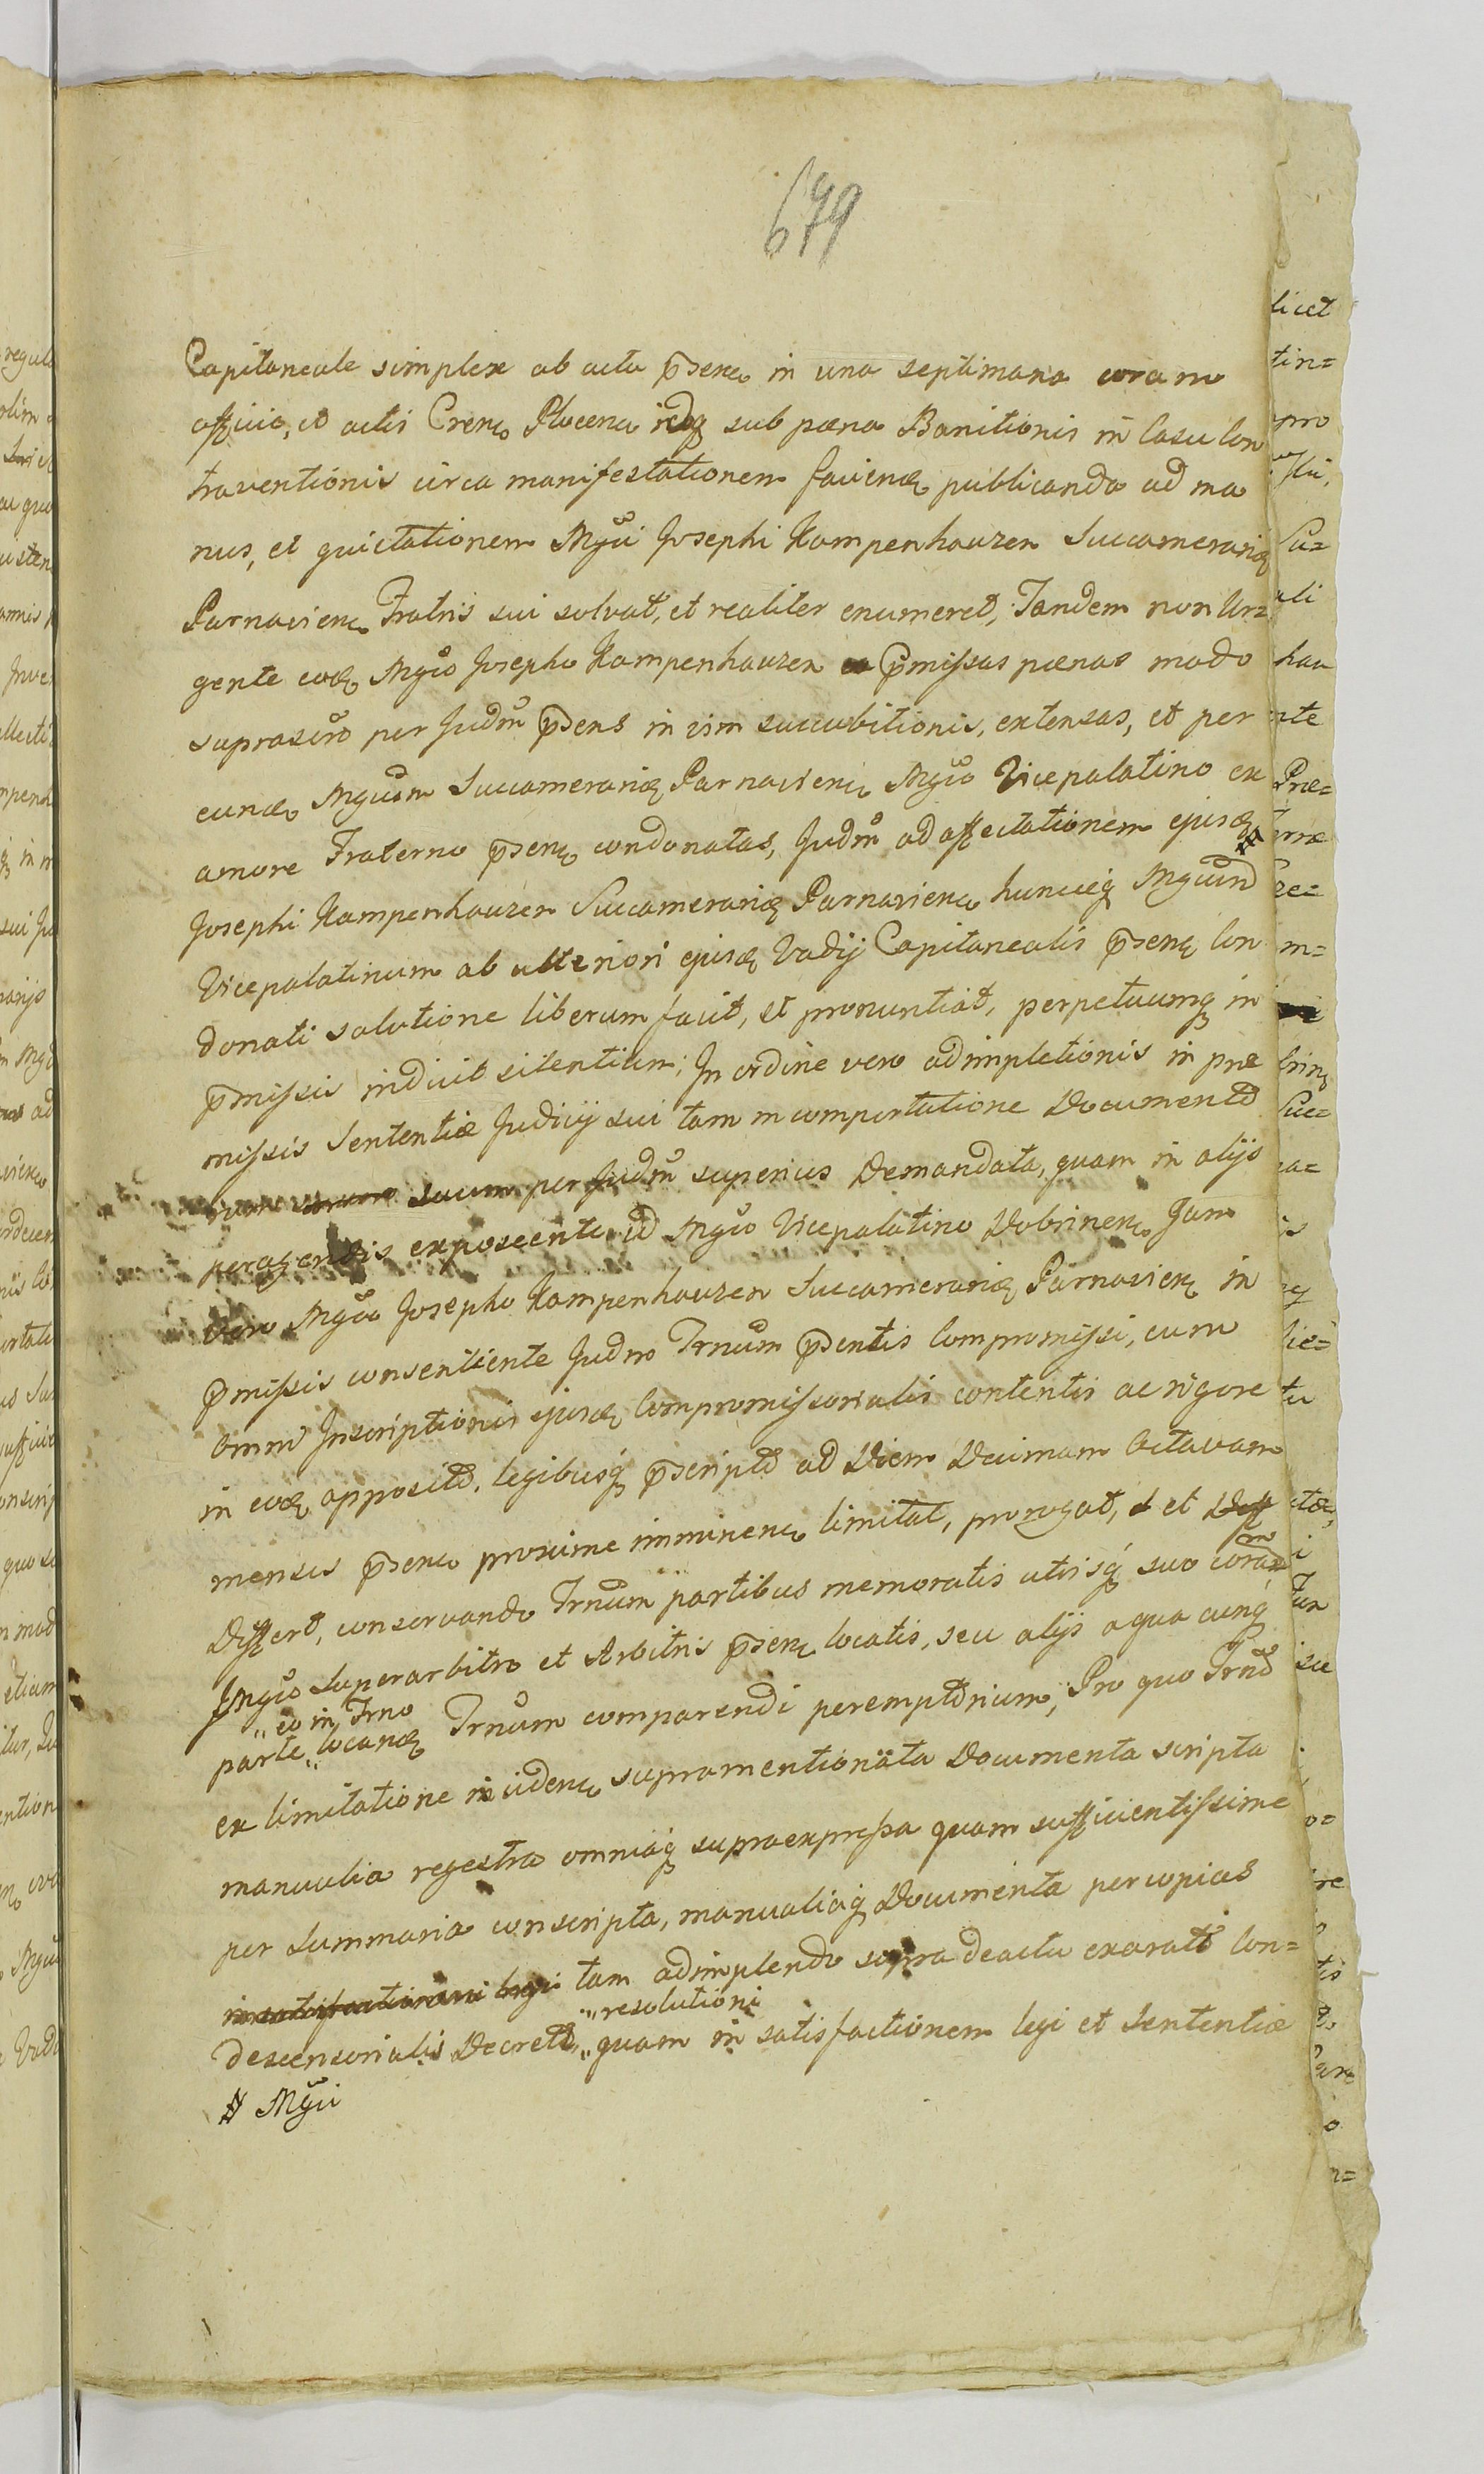 679
Capitaneale simplex ab actu p̄senc in una septimana coram
officio, et actis Crenc Plocenc idq sub pæna Banitionis in Casu Con
traventionis circa manifestationem faciend publicanda ad ma
nus, et quietationem Mgci Josephi Kampenhauzen Succamerarij
Parnavienc Fratris sui solvat, et realiter enumeret, Tandem non Ur=
gente eod Mgco Josepho Kampenhauzen p̄missas pænas modo
suprascro per Judm p̄sens in vim succubitionis, extensas, et per
eund Mgcum Succamerariũ Parnavienc Mgco Vicepalatino ex
amore Fraterno p̄senc condonatas, Judm ad affectationem ejusd #
Josephi Kampenhauzen Succamerarij Parnavienc huncq Mgcum
Vicepalatinum ab ulteriori ejusd Vadij Capitanealis p̄senc Con
donati solutione liberum facit, et pronuntiat, perpetuumq in
p̄missis indicit silentium; In ordine vero adimpletionis in præ
missis Sententiæ Judicij sui tam in comportatione Documentor
suum per Judm superius Demandata, quam in alijs
peragendis exposcente id Mgco Vicepalatino Dobrinenc Jam
vero Mgco Josepho Kampenhauzen Succamerario Parnavienc in
p̄missis consentiente Judm Trnum p̄sentis Compromissi, cum
omni Inscriptionis ejusd Compromissorialis contentis ac rigore
in eod apposito, legibusq p̄scripto ad Diem Decimam Octavam
mensis p̄senc proxime imminenc limitat, prorogat, et
Differt, conservando Trnum partibus memoratis utrisq suo coram
Mgco Superarbitro et Arbitris p̄senc locatis, seu alijs a qua cunq
„ eo in Trno
parte „ locand Trnum comparendi peremptorium, Pro quo Trno
ex limitatione incidenc supramentionata Documenta scripta
manualia regestra omniaq supraexpressa quam sufficientissime
per Summaria conscripta, manualiaq Documenta per copias
in satisfactionem legi tam adimplendo supra de actu exarati Con=
„ resolutioni
descensorialis Decreti „ quam in satisfactionem legi et Sententiæ
# Mgci